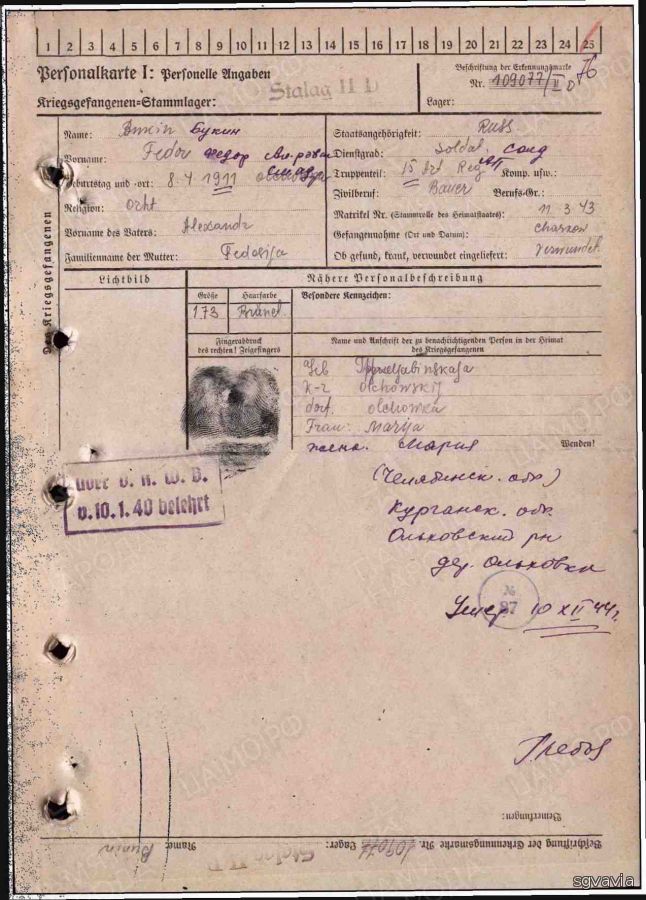 1 2 3 4 5 6 7 8 9 10 11 12 13 14 15 16 17 18 19 20 21 22 23 24 25
Personalkarte I: Personelle Angaben
Kriegsgefangenen=Stammlager: Stalag II D
Beschriftung der Erkennungsmarke
Nr. 109077/II D
76
Lager:
Des Kriegsgefangenen
Name: Букин
Vorname: Fedor Федор
Geburtstag und -ort: 8. 4 1911
Religion: orht
Vorname des Vaters: Alexandr
Familienname der Mutter: Fedosja
Staatsangehörigkeit: Russ
Dienstgrad: Soldat. солд
Truppenteil: 15 Art Reg АП Komp. usw.:
Zivilberuf: Bauer Berufs-Gr.:
Matrikel Nr. (Stammrolle des Heimatstaates): 11. 3. 43
Gefangennahme (Ort und Datum): Charkow
Ob gefund, krank, verwundet eingeliefert: verwundet
Lichtbild
Nähere Personalbeschreibung
Größe
Haarfarbe
Besondere Kennzeichen:
173
Fingerabdruck
des rechten! Zeigefingers
Name und Anschrift der zu benachrichtigenden Person in der Heimat
des Kriegsgefangenen
Geb
olchowskij
dorf. olchowka
Frau: Marija
жена. Мария
Wenden!
(Челябинск. обл.)
Курганск. обл.
Ольховский рн
дер. Ольховки
Умер. 10 XII 44г.
№
97
über d. K. W. V.
v.10.1.40 belehrt
Bemerkungen:
Beschriftung der Erkennungsmarke Nr. 109077 Lager: Stalag II D Name:
ЦАМО.РФ
sgvavia